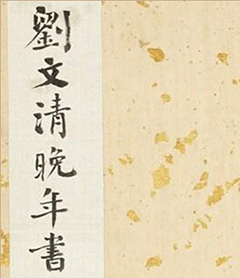 劉文清晚年書